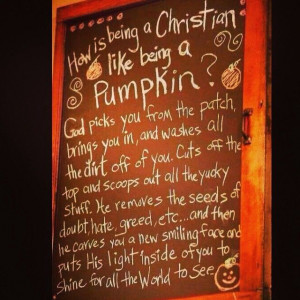 How is being a Christian
like being a
Pumpkin?
God picks you from the patch,
brings you in, and washes all
the dirt off of you. Cuts off the
top and scoops out all the yucky
stuff. He removes the seeds of
doubt, hate, greed, etc...and then
he carves you a new smiling face and
puts His light inside of you to
shine for all the World to See